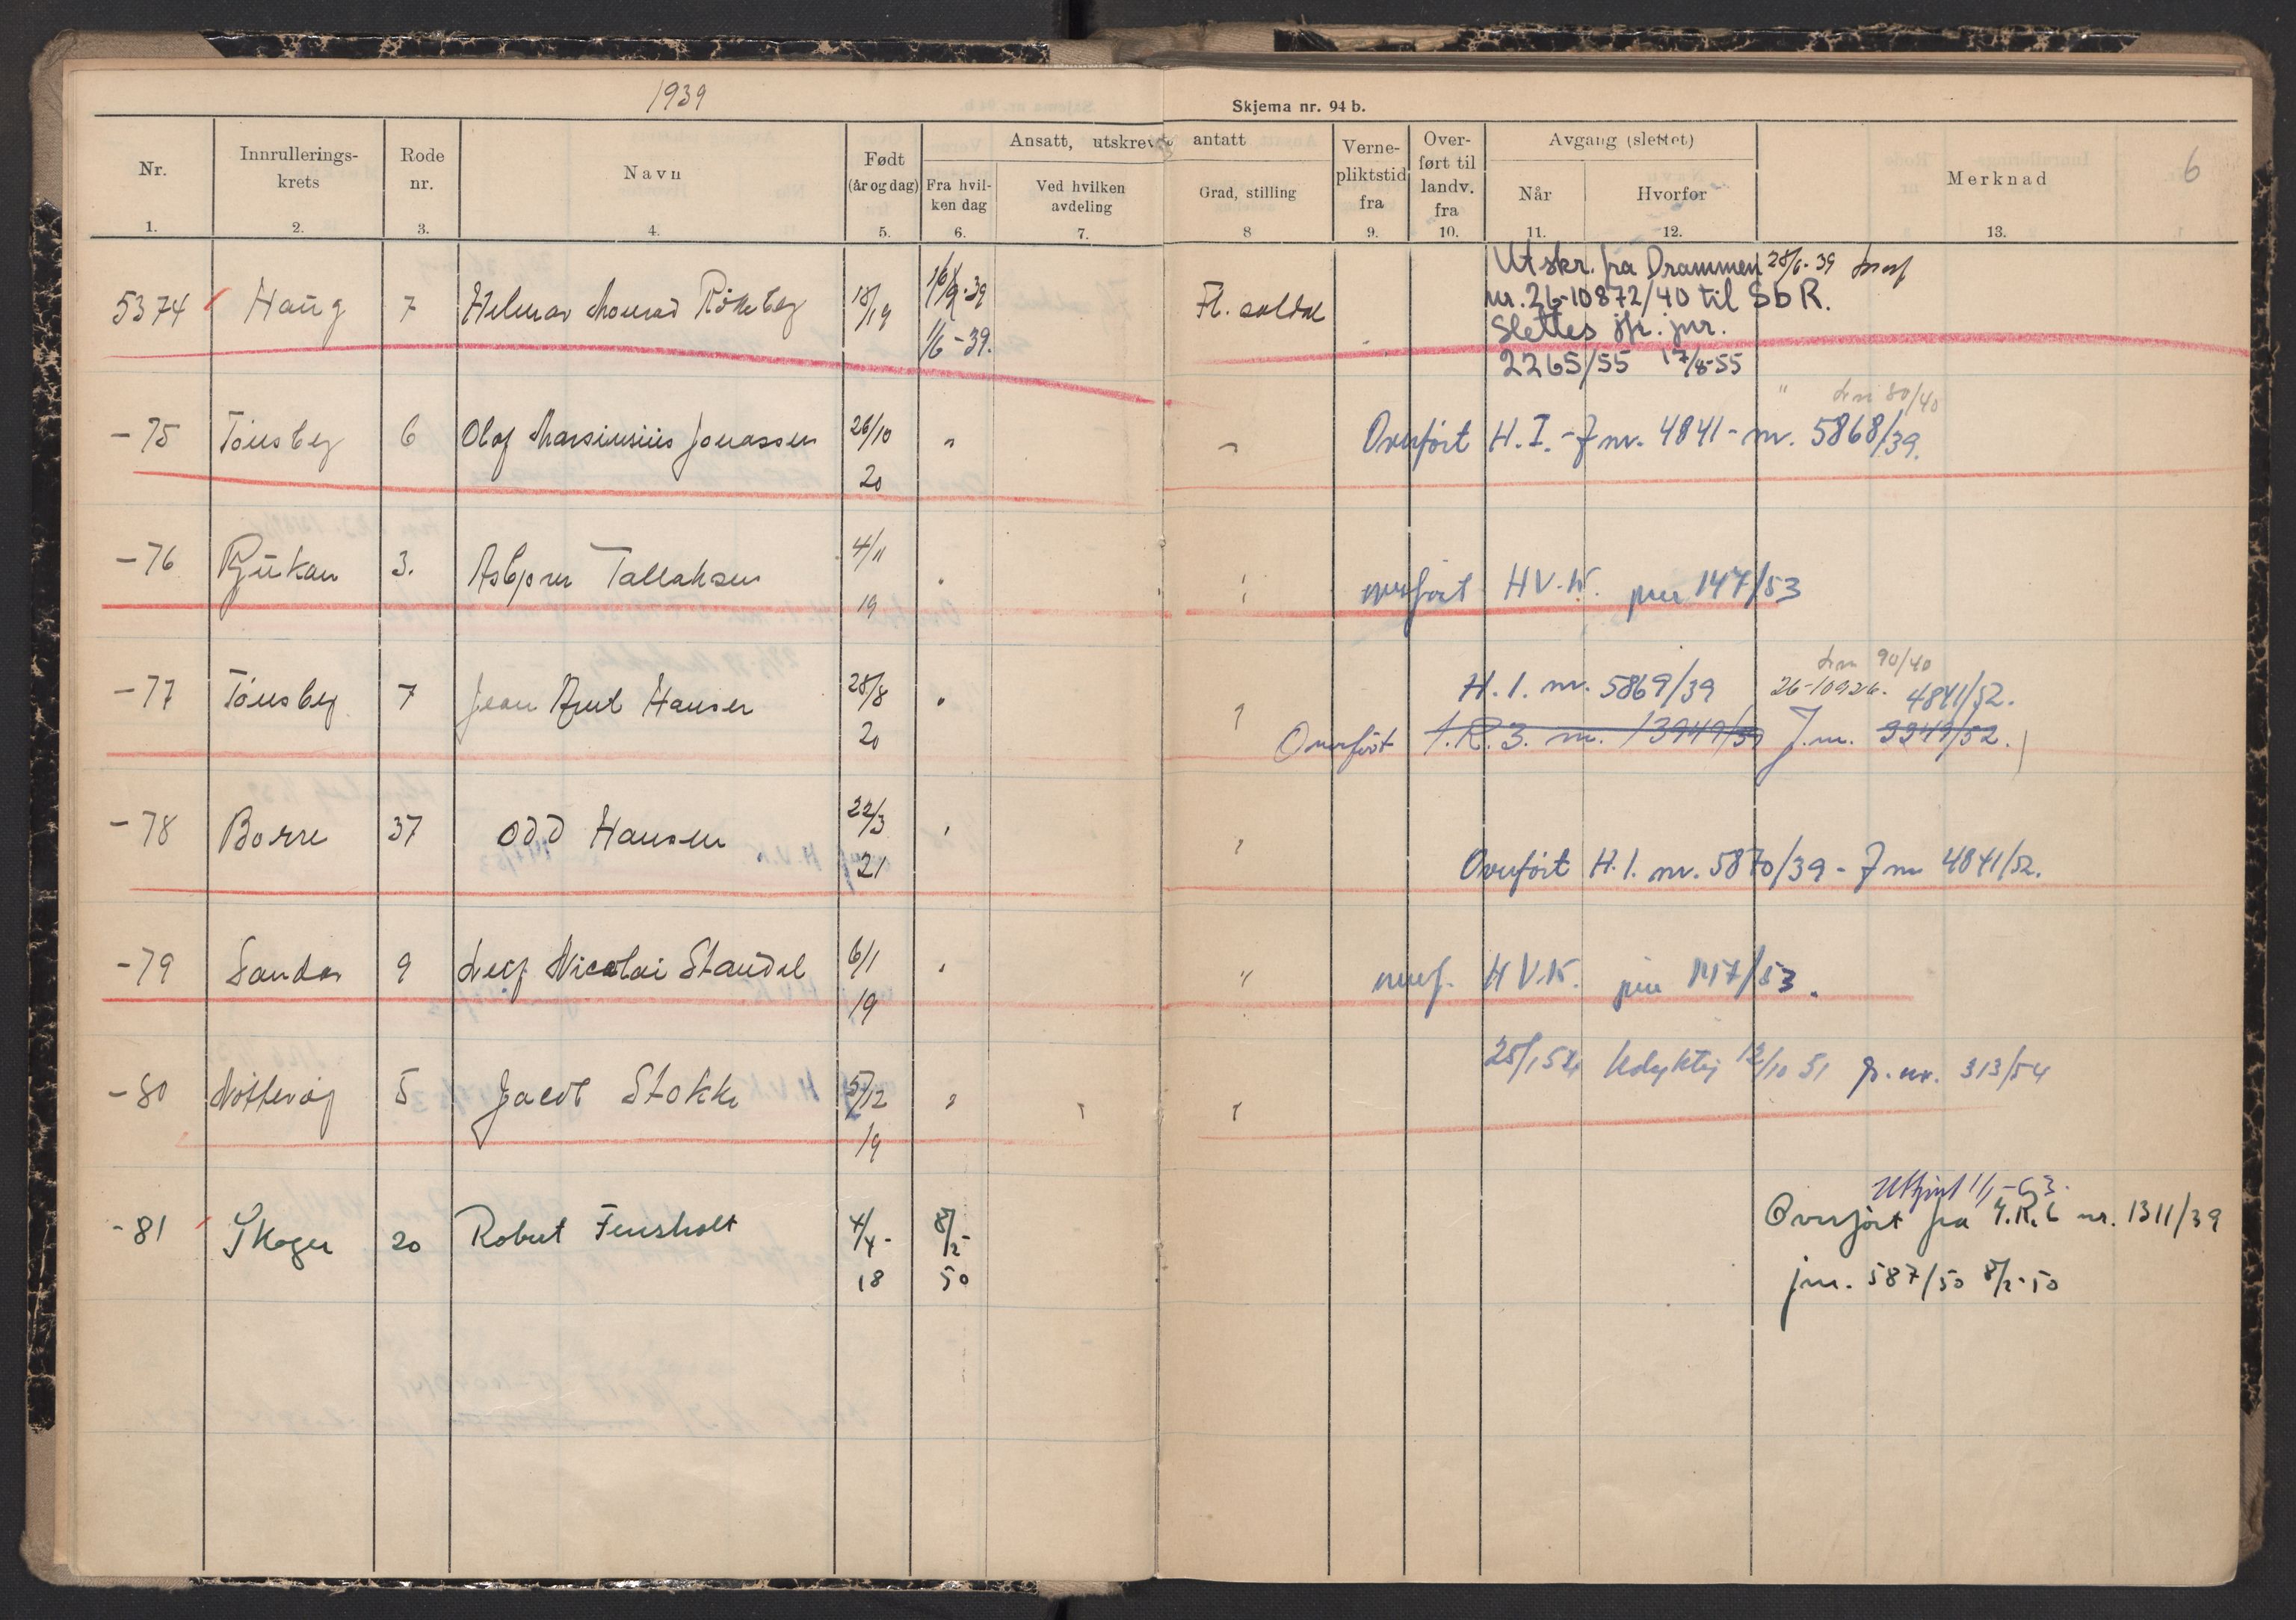 1939
Skjema nr. 94 b.
6
Nr. Innrullerings- krets Rode nr. Navn Født (år og dag) Ansatt, utskrevet antatt Fra hvil- ken dag Ved hvilken avdeling Grad, stilling Verne- pliktstid fra Over- ført til landv. fra Avgang (slettet) Når Hvorfor Merknad
1. 2. 3. 4. 5. 6. 7. 8 9. 10. 11. 12. 13.
Utskr. fra Drammen 28/6-39
5374 Haug 7 Helmar 18/19 Fl. soldat nr. 26-10872/40 til SbR.
1/6-39. Slettes jfr. jnr.
2265/55 17/8-55
80/40
-75 Tönsberg 6 Olaf Marsinius Jonassen 26/10 " Overført H.I.-Jnr. 4841- nr. 5868/39.
20
-76 Rjukan 3. Asbjørn Tallaksen 4/11 " overført H V.K. jnr 147/53
19
90/40
-77 Tönsberg 7 Jean Hansen 28/8 " H.I. nr. 5869/39 26-10926. 4841/52.
20 Overført I.R.3. nr. 13949/39 J.nr. 9949/52.
-78 Borre 37 Odd Hansen 22/3 "
21 Overført H.I. nr. 5870/39 - Jnr 4841/52.
-79 Sandar 9 Leif Nicolai Standal 6/1 " " overf. H V.K. jnr 147/53.
19
25/1 54 Udyktig 12/10 51 J. nr. 313/54
-80 Nötterøy 5 Jacob Stokke 5/12 "
19
Utgått 1/1-63.
-81 Skoger 20 Robert Fensholt 4/4- 8/2- Overført fra I.R.6 nr. 1311/39
18 50 jnr. 587/50 8/2-50